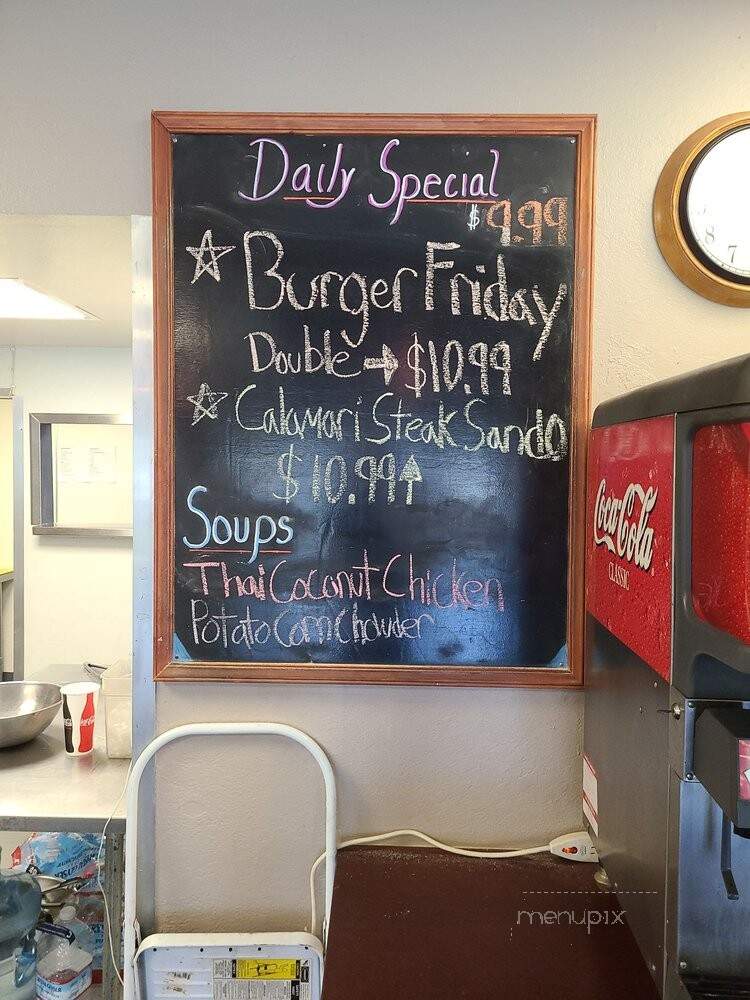 Daily Special
$9.99
Burger Friday
Double → $10.99
Calamari Steak Sando
$10.99↑
Soups
Thai Coconut Chicken
Potato Corn Chowder
Coca-Cola
CLASSIC
8
7
menupix